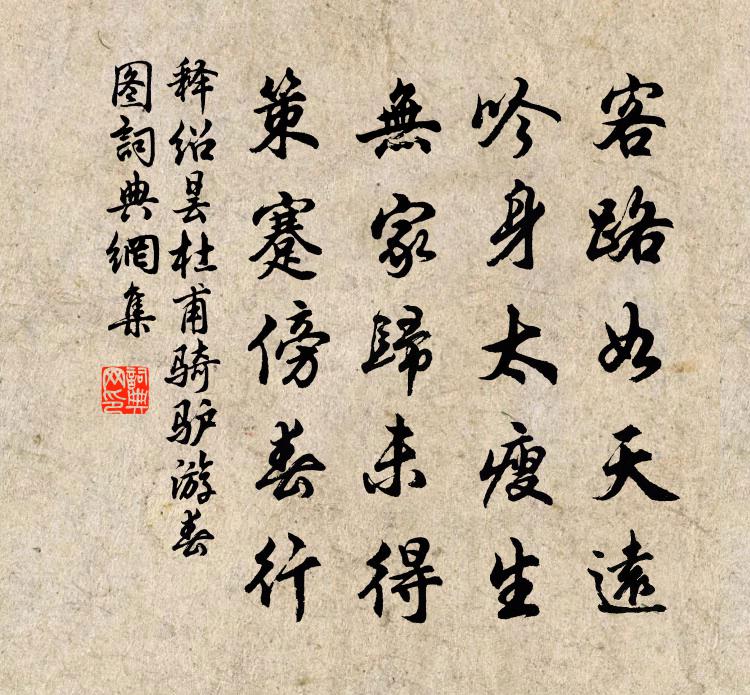 客路如天遠
吟身太瘦生
無家歸未得
策蹇傍春行
释绍昙杜甫骑驴游春
图詞典網集
詞典
网印